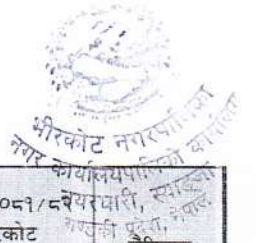 भीरकोट नगरपालिका
नगर कार्यपालिकाको कार्यालय
बयरघारी, स्याङ्जा
गण्डकी प्रदेश, नेपाल
०८१/८२
रकोट